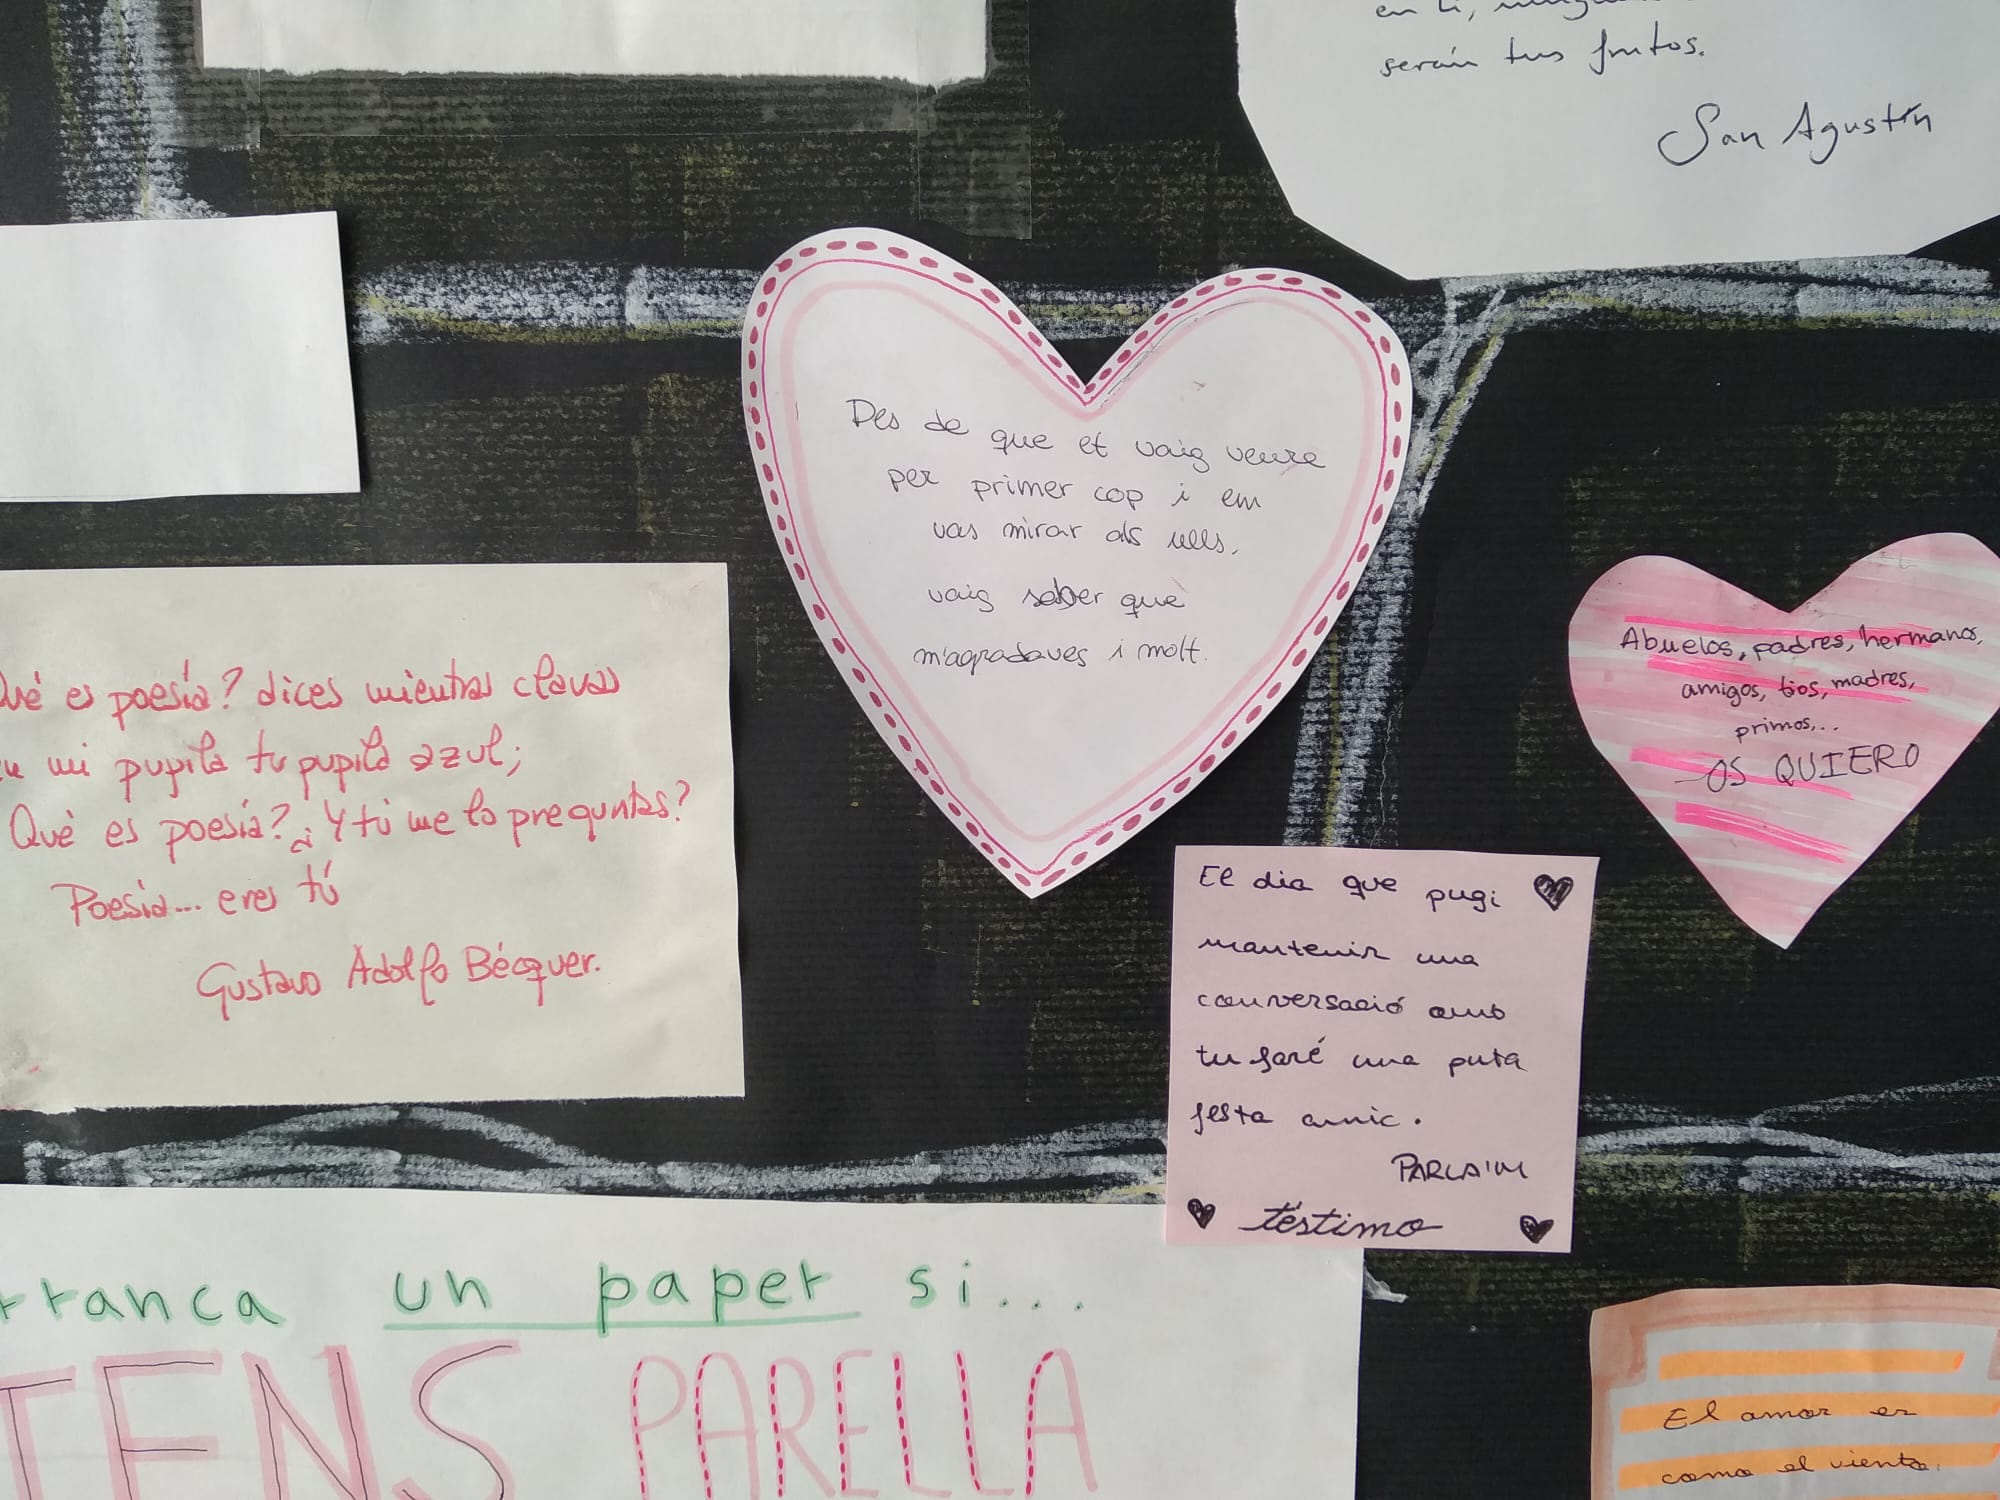 en ti,
serán tus frutos.
San Agustín
Des de que et vaig veure
per primer cop i em
vas mirar als ulls,
vaig saber que
m'agradaves i molt.
Qué es poesía? dices mientras clavas
en mi pupila tu pupila azul;
Qué es poesía? ¿Y tú me lo preguntas?
Poesía... eres tú
Gustavo Adolfo Bécquer.
Abuelos, padres, hermanos,
amigos, tios, madres,
primos,...
OS QUIERO
El dia que pugi
mantenir una
conversació amb
tu faré una puta
festa amic.
PARLA'M
téstimo
rranca un paper si...
TENS PARELLA
El amor es
como el viento,